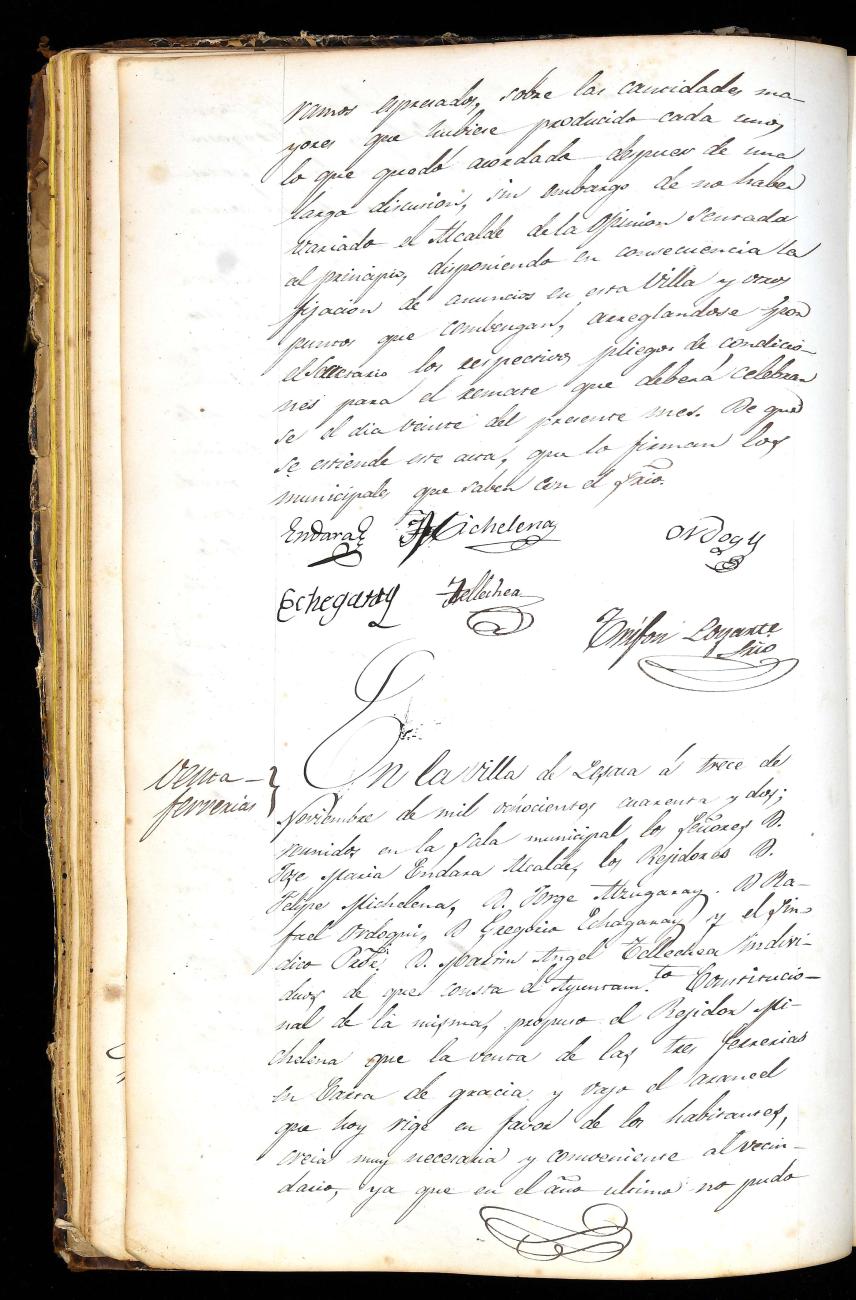 ramos espresados, sobre las cantidades ma-
yores que hubiese producido cada uno,
lo que quedó acordado despues de una
larga discusion, sin embargo de no haber
variado el Alcalde de la Opinion sentada
al principio, disponiendo en consecuencia la
fijacion de anuncios en esta Villa y otros
puntos que combengan, arreglandose por
el Secretario los respectivos pliegos de condicio-
nes para el remate que deberá celebrar
se el dia veinte del presente mes. De que
se estiende este acta, que lo firman los
municipales que saben con el Srio.
Endara Michelena Ordoqui
Echegaray Tellechea
Trifon Loyarte
Srio
Venta
ferrerias
En la Villa de Lesaca á trece de
Noviembre de mil ochocientos cuarenta y dos;
reunidos en la Sala municipal los Señores D.
Jose Maria Endara Alcalde, los Rejidores D.
Felipe Michelena, D. Jorge Alzugaray. D Ra-
fael Ordoqui, D Gregorio Echagaray y el Sin-
dico D. Martin Angel Tellechea Individi-
duos de que consta el Ayuntam.to Constitucio-
nal de la misma, propuso el Rejidor Mi-
chelena que la venta de las tres ferrerias
en Carta de gracia y vajo el arancel
que hoy rige en favor de los habitantes,
creia muy necesaria y conveniente al vecin-
dario, ya que en el año ultimo no pudo